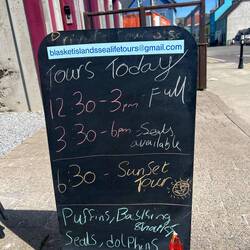 blasketislandssealifetours@gmail.com
Tours Today
12.30-3pm Full
3.30-6pm Seats
available
6.30 - Sunset
tour
Puffins, Basking
sharks
Seals, dolphins